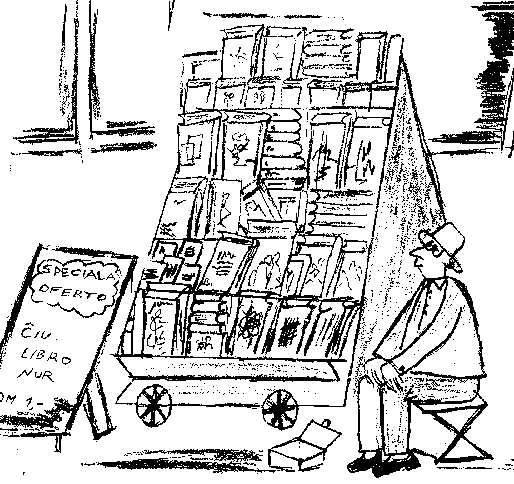 SPECIALA
OFERTO
ĈIU
LIBRO
NUR
DM 1,-